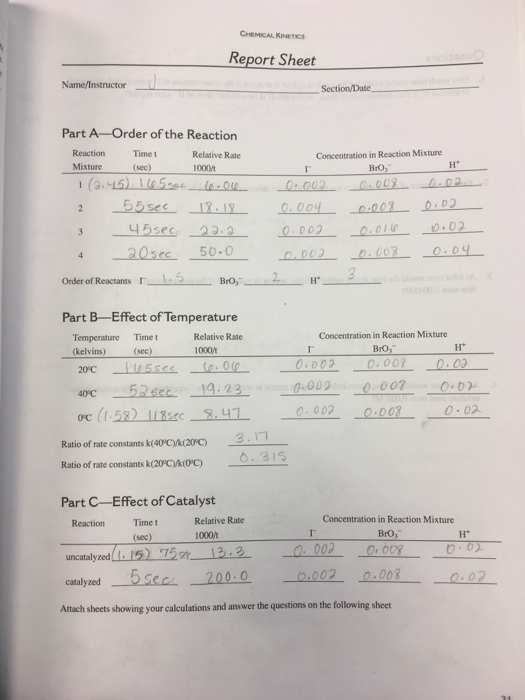 CHEMICAL KINETICS
Report Sheet
Name/Instructor Section/Date
Part A—Order of the Reaction
Reaction Time t Relative Rate Concentration in Reaction Mixture
Mixture (sec) 1000/t I⁻ BrO₃⁻ H⁺
1 (2.45) 165sec 6.06 0.002 0.008 0.02
2 55sec 18.18 0.004 0.008 0.02
3 45sec 22.2 0.002 0.016 0.02
4 20sec 50.0 0.002 0.008 0.04
Order of Reactants I⁻ 1.5 BrO₃⁻ 2 H⁺ 3
Part B—Effect of Temperature
Temperature Time t Relative Rate Concentration in Reaction Mixture
(kelvins) (sec) 1000/t I⁻ BrO₃⁻ H⁺
20°C 165sec 6.06 0.002 0.008 0.02
40°C 52sec 19.23 0.002 0.008 0.02
0°C (1.58) 118sec 8.47 0.002 0.008 0.02
Ratio of rate constants k(40°C)/k(20°C) 3.17
Ratio of rate constants k(20°C)/k(0°C) 0.315
Part C—Effect of Catalyst
Reaction Time t Relative Rate Concentration in Reaction Mixture
(sec) 1000/t I⁻ BrO₃⁻ H⁺
uncatalyzed (1.15) 75sec 13.3 0.002 0.008 0.02
catalyzed 5sec 200.0 0.002 0.008 0.02
Attach sheets showing your calculations and answer the questions on the following sheet